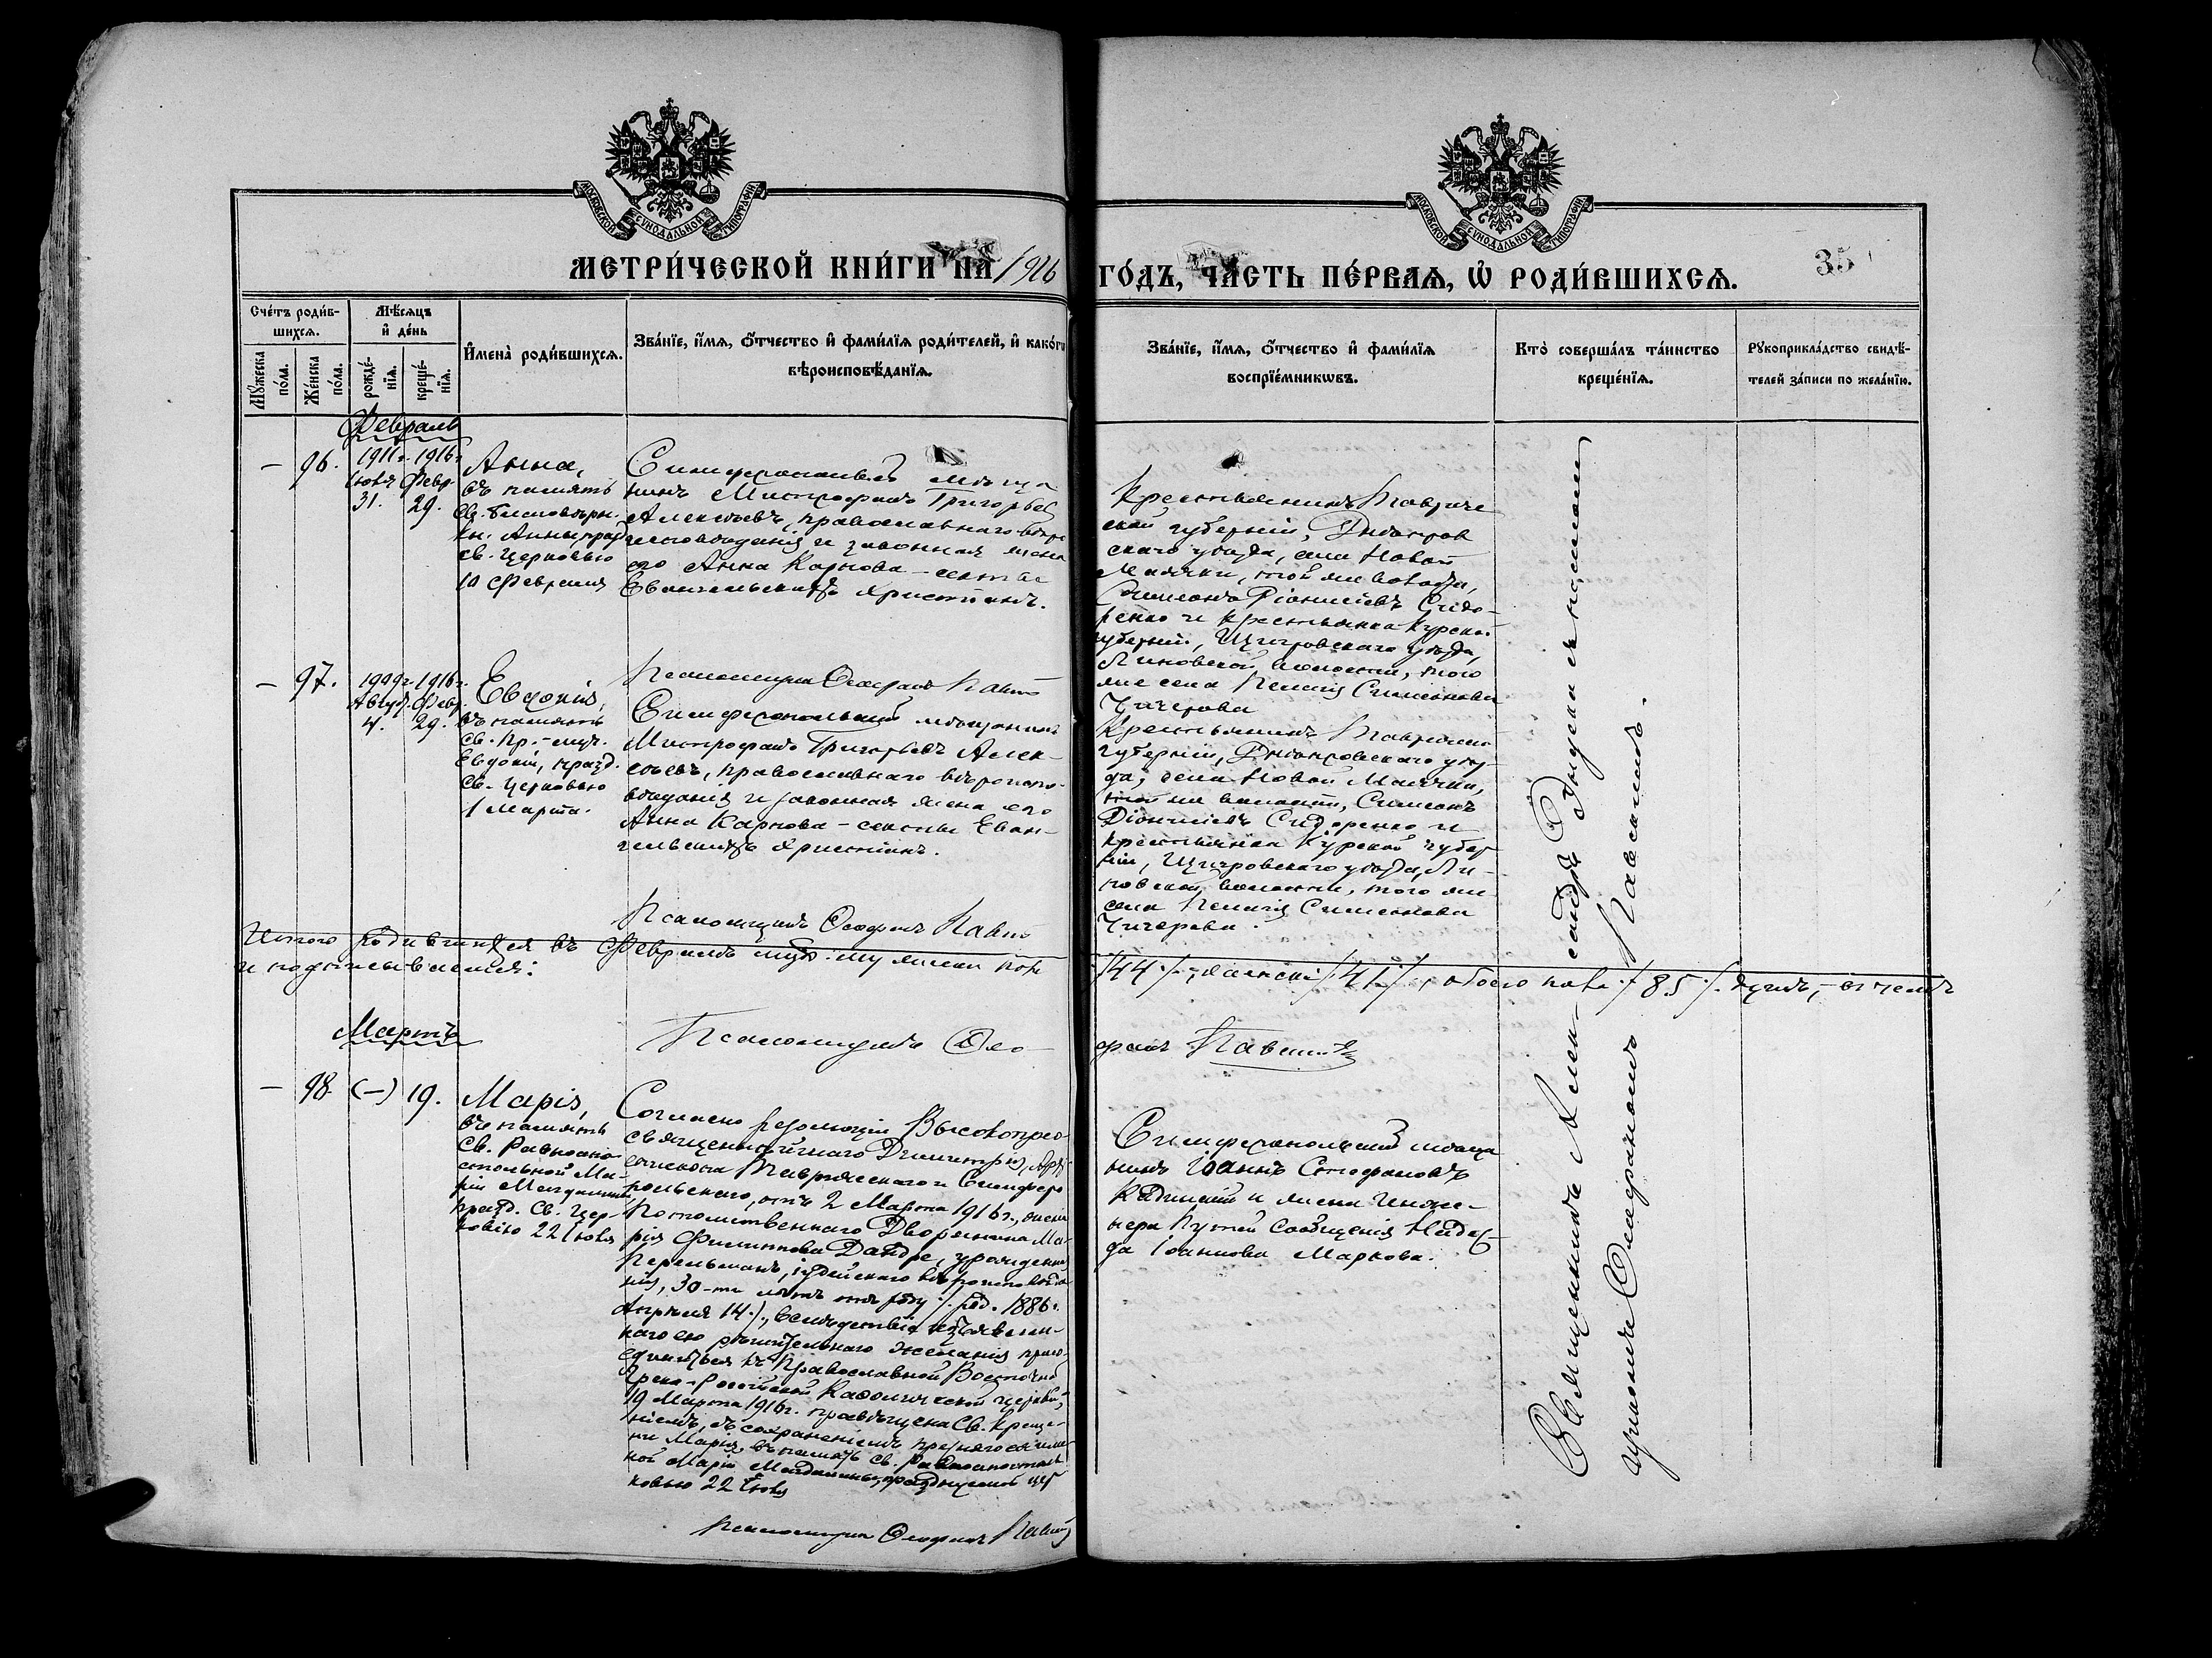 МОСКОВСКОЙ СѴНОДАЛЬНОЙ ТИПОГРАФІИ
МОСКОВСКОЙ СѴНОДАЛЬНОЙ ТИПОГРАФІИ
МЕТРИ́ЧЕСКОЙ КНИ́ГИ НА 1916 ГО́ДЪ, ЧА́СТЬ ПЕ́РВАѦ, Ѡ҆ РОДИ́ВШИХСѦ.
35
Сче́тъ роди́в-
шихсѧ.
Мꙋ́жеска по́ла.
Же́нска по́ла.
Мѣ́сѧцъ
и҆ де́нь
рожде́-
нїѧ.
креще́-
нїѧ.
И҆мена̀ роди́вшихсѧ.
Зва́нїе, и҆́мѧ, ѻ҆́тчество и҆ фами́лїѧ роди́телей, и҆ како́гѡ
вѣроисповѣ́данїѧ.
Зва́нїе, и҆́мѧ, ѻ҆́тчество и҆ фами́лїѧ
воспрїе́мникѡвъ.
Кто̀ соверша́лъ та́инство
креще́нїѧ.
Рꙋкоприкла́дство свидѣ́-
телей за́писи по жела́нїю.
Февраль
— 96. 1911 г. 1916 г.
Іюля Февр.
31. 29.
Анна,
въ память
св. благовѣрн.
кн. Анны, празд.
св. Церковью
10 Февраля
Симферопольскій мѣща
нинъ Митрофанъ Григорьев
Алексѣевъ, православнаго вѣро
исповѣданія и законная жена
его Анна Карпова – секты
Евангельскихъ Христіанъ.
Псаломщикъ Ѳеофанъ
Крестьянинъ Тавриче
ской губерніи, Днѣпров
скаго уѣзда, села Новой
Маячки, той же волости,
Симеонъ Діонисіевъ Сидо-
ренко и крестьянка Курской
губерніи, Щигровскаго уѣзда,
Липовской волости, того
же села Симеонова
Чичерова
— 97. 1909 г. 1916 г.
Август. Февр.
4. 29.
Евдокія,
въ память
св. Пр.-муч.
Евдокіи, празд.
св. Церковью
1 Марта.
Симферопольскій мѣщанинъ
Митрофанъ Григорьевъ Алек-
сѣевъ, православнаго вѣроиспо-
вѣданія и законная жена его
Анна Карпова – секты Еван-
гельскихъ Христіанъ.
Псаломщикъ Ѳеофанъ
Крестьянинъ Таврической
губерніи, Днѣпровскаго уѣз-
да, села Новой Маячки,
той же волости, Симеонъ
Діонисіевъ Сидоренко и
крестьянка Курской губер
ніи, Щигровскаго уѣзда, Ли-
повской волости, того же
села Симеонова
Чичерова.
Итого родившихся въ Февралѣ муж. /44/., женска /41/., обоего пола ./85/. душъ, – въ чемъ
и подписываемся:
Псаломщикъ Ѳео-
фанъ
Мартъ
— 98. (—) 19.
Марія,
въ память
Св. Равноапо-
стольной Ма-
ріи Магдалины
празд. Св. Цер-
ковію 22 Іюля
Согласно резолюціи Высокопрео-
священнѣйшаго Димитрія, Архі
епископа Таврическаго и Симферо
польскаго, отъ 2 Марта 1916 г., жена
Потомственнаго Дворянина Ма-
рія Филиппова урожденная
Перельманъ, іудейскаго вѣроисповѣда
нія, 30-ти лѣтъ отъ роду ./. род. 1886 г.
Апрѣля 14 ./., вслѣдствіе изъявлен-
наго ею рѣшительнаго желанія присо-
единиться къ Православной Восточной
Греко-Россійской Каѳолической церкви,
19 Марта 1916 г. просвѣщена Св. Креще-
ніемъ, съ сохраненіемъ прежняго ея име
ни Марія, въ память св. Равноапостоль
ной Маріи Магдалины, празднуемой цер
ковью 22 Іюля
Псаломщикъ Ѳеофанъ
Симферопольскій мѣща
нинъ Іоаннъ Стефановъ
и жена Инже-
нера Путей Сообщенія Надеж-
да Іоаннова Маркова.
Священникъ Александръ съ псаломщикомъ